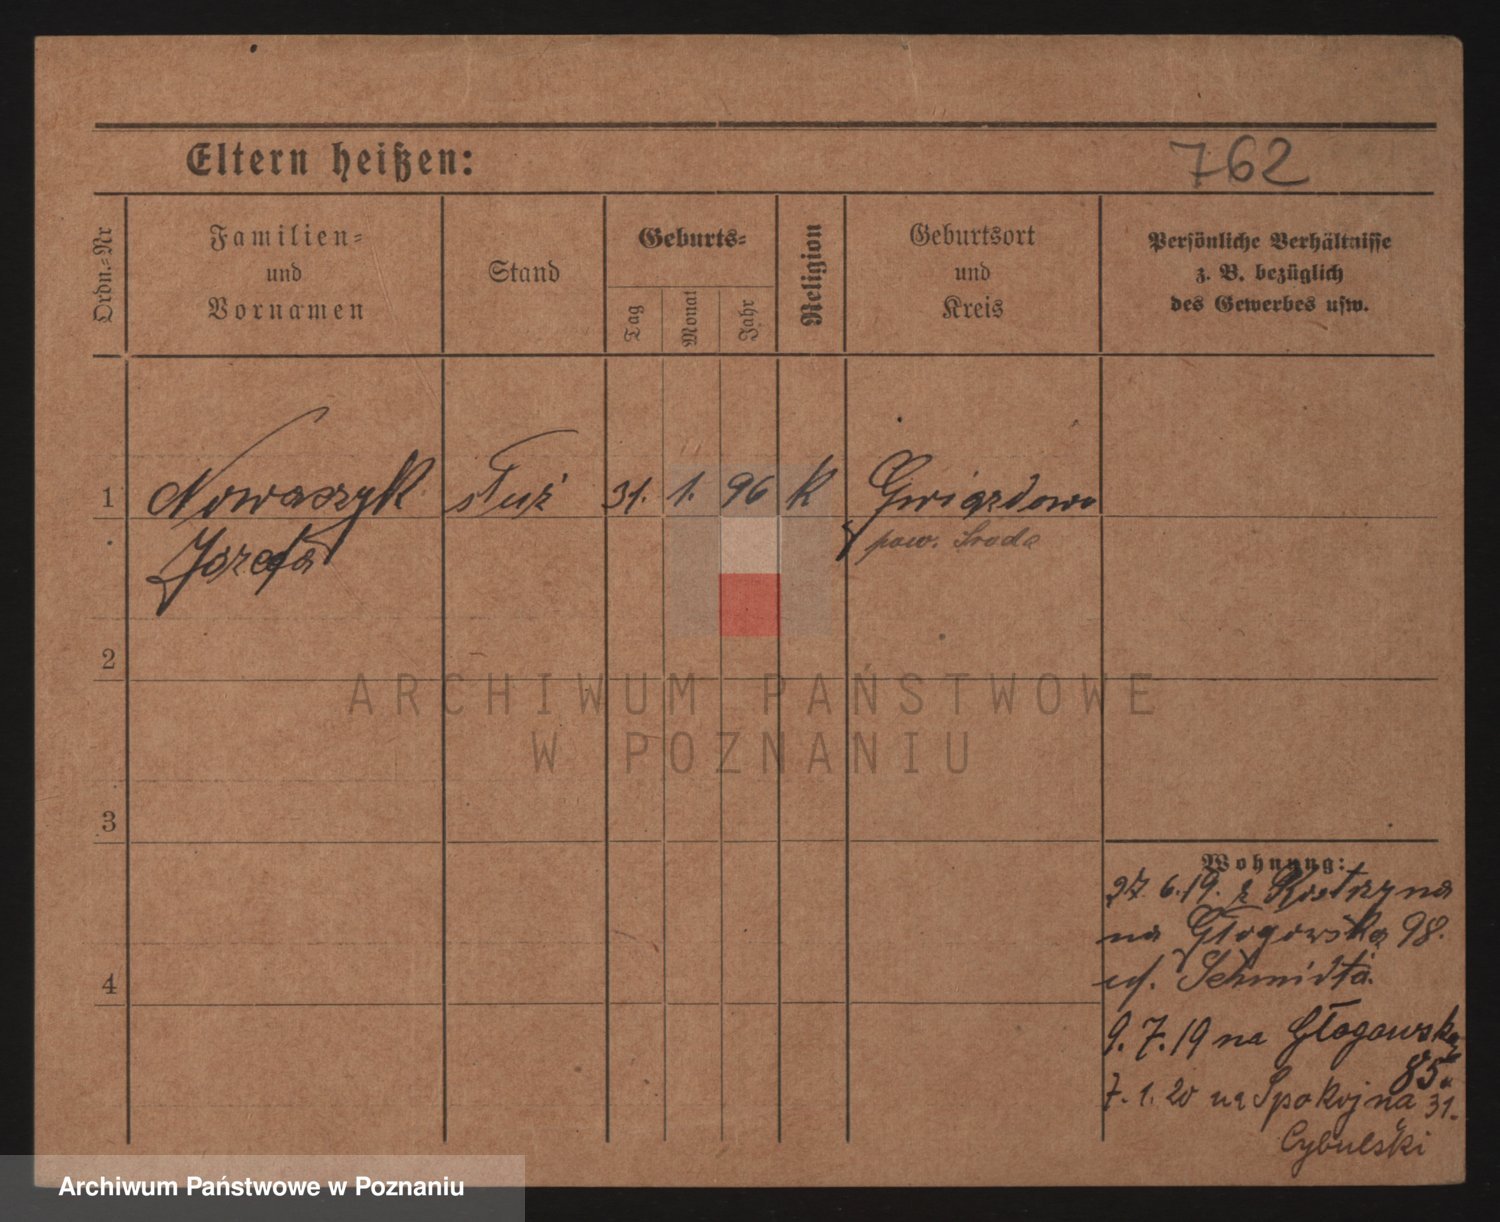 Eltern heißen:
762
Ordn.-Nr
Familien-
und
Vornamen
Stand
Geburts-
Tag
Monat
Jahr
Religion
Geburtsort
und
Kreis
Persönliche Verhältnisse
z. B. bezüglich
des Gewerbes usw.
1 Nowaszyk służ 31. 1. 96 K Gwiazdowo
Józefa pow. Środa
2
3
4
Wohnung:
27. 6. 19. z Kostrzyna
na Głogowską 98.
Schmidta.
9. 7. 19 na Głogowską
85.
7. 1. 20 na Spokojną 31.
Cybulski
ARCHIWUM PAŃSTWOWE
W POZNANIU
Archiwum Państwowe w Poznaniu